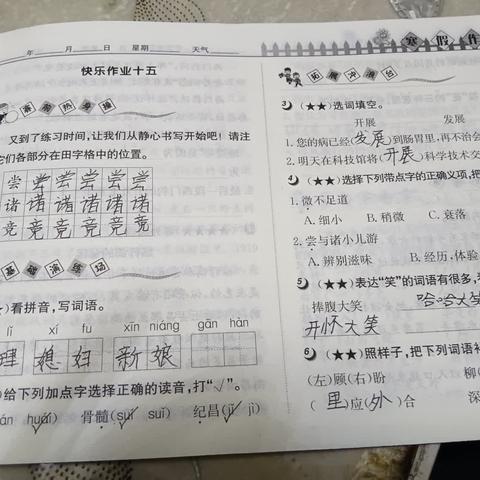 年 月 日 星期 天气
快乐作业十五
课前热身操
又到了练习时间,让我们从静心书写开始吧!请注
它们各部分在田字格中的位置。
尝 尝 尝 尝 尝 尝
诸 诸 诸 诸 诸 诸
竞 竞 竞 竞 竞 竞
基础演练场
看拼音,写词语。
lǐ xí fu xīn niáng gān hàn
理 媳 妇 新 娘
给下列加点字选择正确的读音,打“√”。
huái) 骨髓(suǐ suí) 纪昌(jǐ jì)
寒假作
拓展冲浪台
(★★)选词填空。
开展 发展
1.您的病已经(发展)到肠胃里,再不治会
2.明天在科技馆将(开展)科学技术交
(★★)选择下列带点字的正确义项,把
1.微不足道
A.细小 B.稍微 C.衰落
2.尝与诸小儿游
A.辨别滋味 B.经历,体验
5 (★★)表达“笑”的词语有很多,
捧腹大笑 哈哈大笑
开怀大笑
6 (★★)照样子,把下列词语补
(左)顾(右)盼 柳(
(里)应(外)合 深